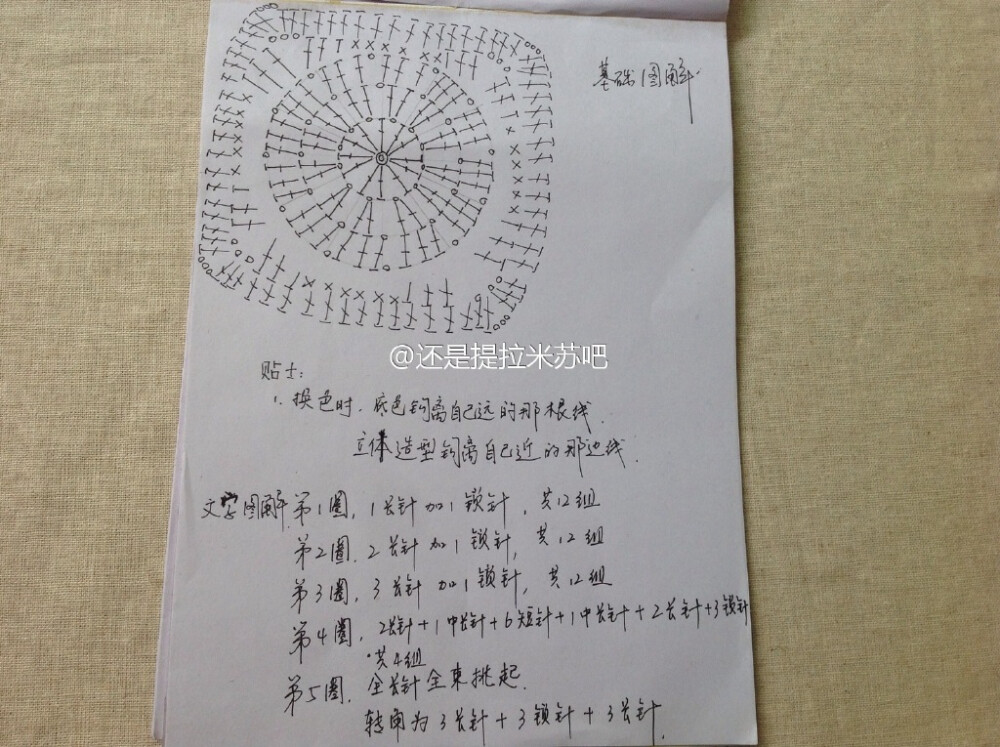 基础图解
@还是提拉米苏吧
贴士:
1. 换色时. 底色钩离自己远的那根线.
立体造型钩离自己近的那边线.
文字图解.第1圈, 1长针加1锁针, 共12组
第2圈. 2长针加1锁针, 共12组
第3圈, 3长针加1锁针, 共12组
第4圈, 2长针+1中长针+6短针+1中长针+2长针+3锁针
共4组
第5圈. 全长针全束挑起.
转角为3长针+3锁针+3长针.